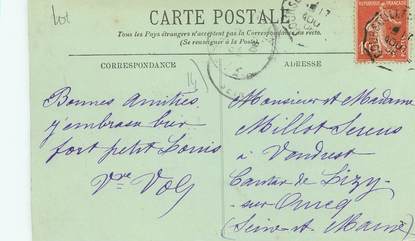 CARTE POSTALE
Tous les Pays étrangers n'acceptent pas la Correspondance au recto.
(Se renseigner à la Poste)
CORRESPONDANCE
ADRESSE
Bonnes Amitiés
j'embrasse bien
fort petit Louis
Vve
Monsieur et Madame
Millot
à Vendrest
Canton de Lizy
sur Ourcq
(Seine et Marne)